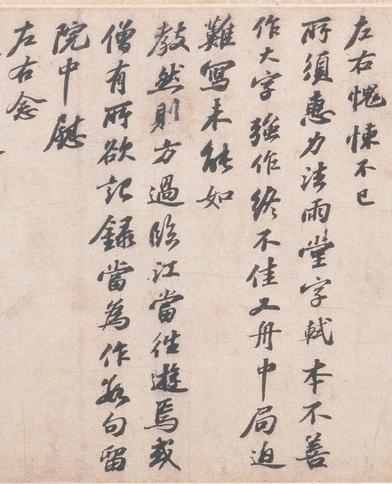 左右愧悚不已
所須惠力法雨堂字軾本不善
作大字強作終不佳又舟中局迫
難寫未能如
教然則方過臨江當徃遊焉或
僧有所欲記錄當為作數句留
院中慰
左右念